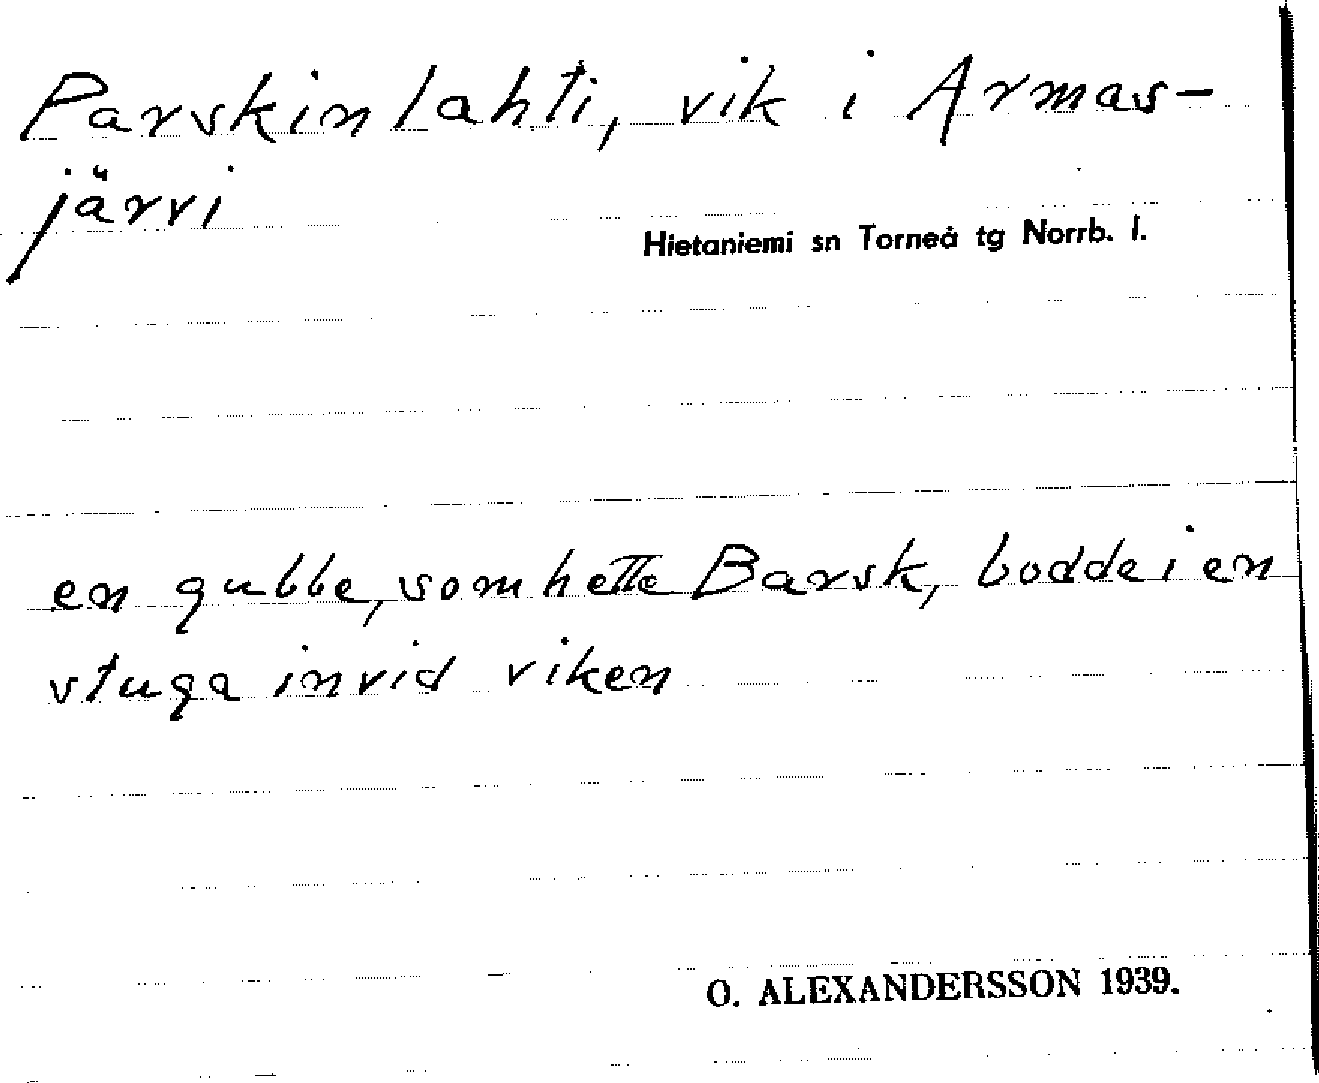 Parskinlahti, vik i Armas-
järvi
Hietaniemi sn Torneå tg Norrb. l.
en gubbe, som hette Barsk, bodde i en
stuga invid viken
O. ALEXANDERSSON 1939.